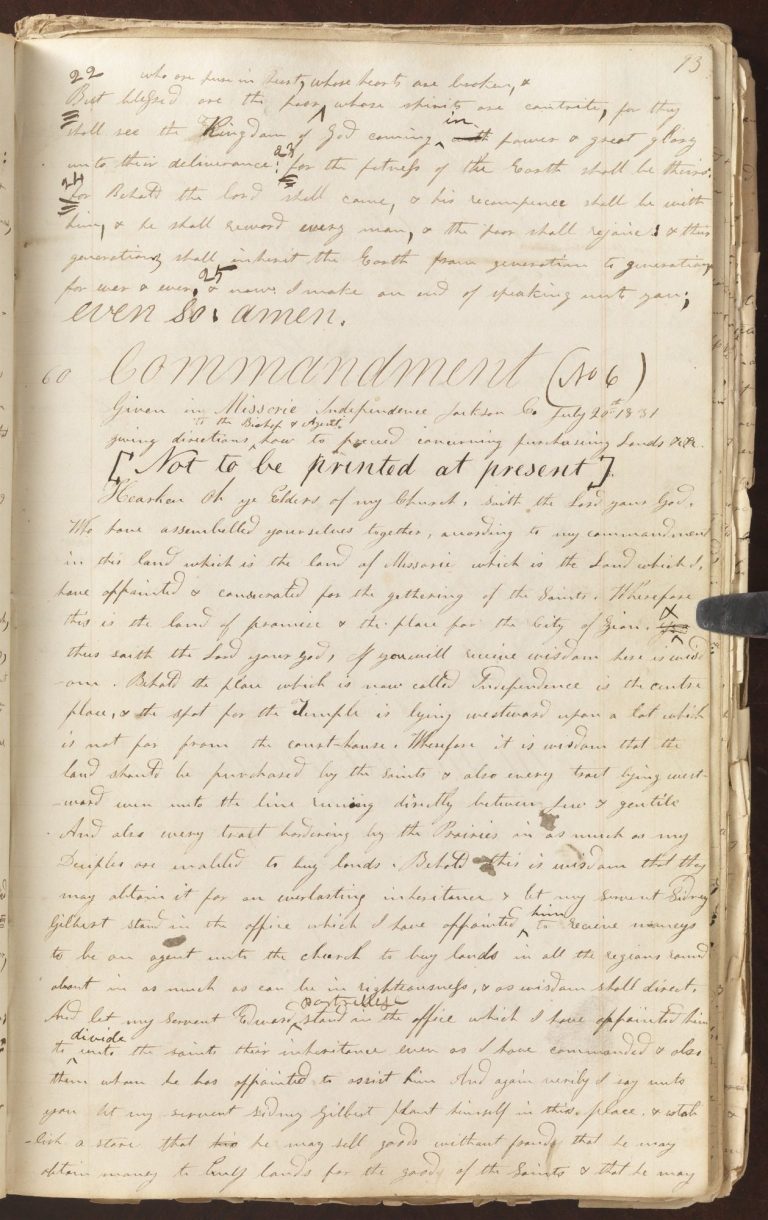 93
22 who are pure in heart, whose hearts are broken, &
But blessed are the poor ^ whose spirits are contrite, for they
in
shall see the Kingdom of God coming ^ power & great glory
unto their deliverance: 23 for the fatness of the Earth shall be theirs.
24 for Behold the lord shall come, & his recompence shall be with
him, & he shall reword every man, & the poor shall rejoice: & their
generations shall inherit the Earth from generation to generation
for ever & ever, 25 & now I make an end of speaking unto you;
even so. amen.
60 Commandment (No 6)
Given in Missorie Independence Jackson Co. July 20th 1831
to the Bishop & Agent
giving directions ^ how to proceed concerning purchasing Lands &c &c.
[Not to be printed at present]
Hearken Oh ye Elders of my Church, saith the Lord your God,
Who have assembelled yourselves together, according to my commandment
in this land which is the land of Missorie which is the Land which I,
have appointed & consecrated for the gethering of the Saints. Wherefore
this is the land of promise & the place for the City of Zion. ^ &
thus saith the Lord your God, If you will receive wisdom here is wisd
-om. Behold the place which is now called Independence is the centre
place, & the spot for the Temple is lying westward upon a lot which
is not far from the court-house. Wherefore it is wisdom that the
land should be purchased by the Saints & also every tract lying west-
-ward even unto the line runing directly between Jew & gentile
And also every tract bordering by the Prairies in as much as my
Deciples are enabled to buy lands. Behold this is wisdom that they
may obtain it for an everlasting inheritance & let my Servent Sidney
him
Gilbert stand in the office which I have appointed ^ to receive moneys
to be an agent unto the church to buy lands in all the regions round
about in as much as can be in righteousness, & as wisdom shall direct.
partridge
And let my Servent Edward ^ stand in the office which I have appointed him
divide
to ^ unto the saints their inheritance even as I have commanded & also
them whom he has appointed to assist him And again verily I say unto
you let my servent Sidney Gilbert plant himself in this place, & estab
-lish a store that he may sell goods without fraud that he may
obtain money to buy lands for the good of the Saints & that he may